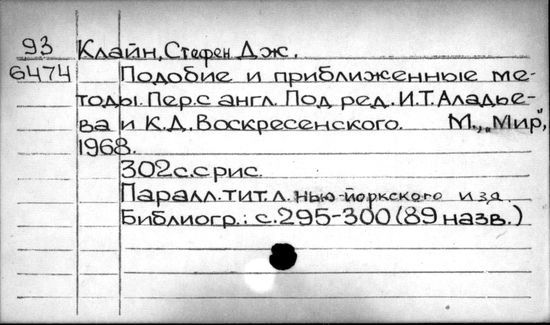 93 Клайн, Стефен Дж.
6474 Подобие и приближенные ме-
тоды. Пер. с англ. Под ред. И.Т. Аладье-
ва и К.Д. Воскресенского. М., „Мир",
1968.
302 с. с рис.
Паралл. тит. л. нью-йоркского изд.
Библиогр.: с. 295-300 (89 назв.)